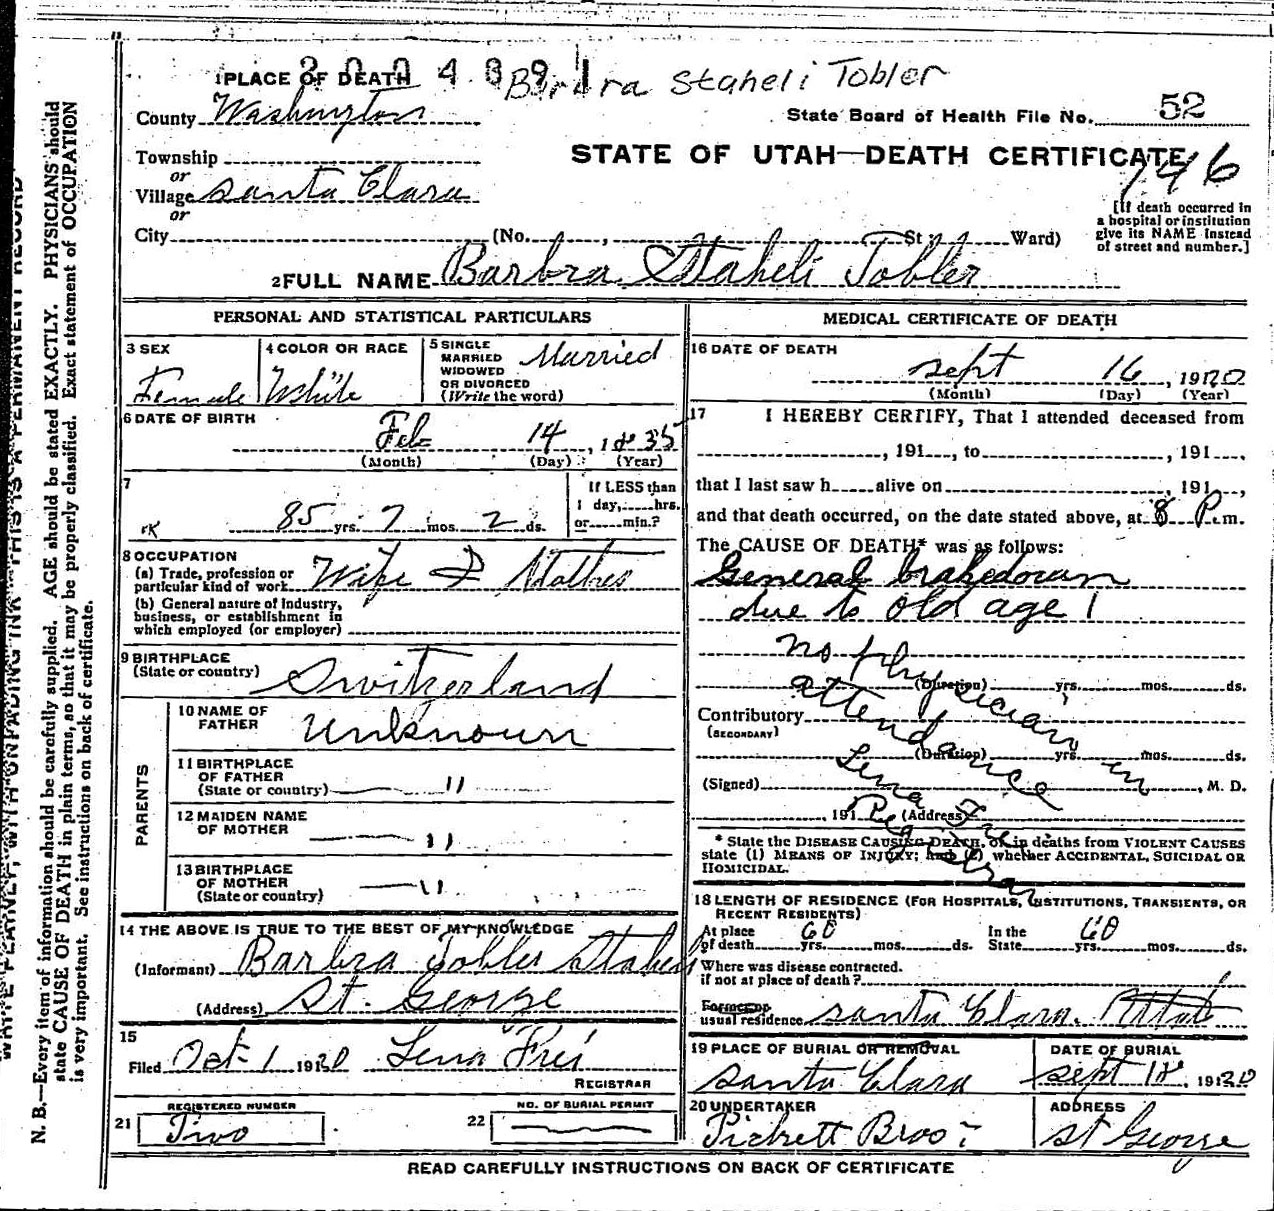 2004891 Barbra Staheli Tobler
1 PLACE OF DEATH
County Washington
State Board of Health File No. 52
Township
or
Village Santa Clara
or
City (No. , St. Ward)
STATE OF UTAH—DEATH CERTIFICATE
746
[If death occurred in
a hospital or institution
give its NAME instead
of street and number.]
2 FULL NAME Barbra Staheli Tobler
PERSONAL AND STATISTICAL PARTICULARS
3 SEX
Female
4 COLOR OR RACE
White
5 SINGLE
MARRIED
WIDOWED
OR DIVORCED
(Write the word)
Married
6 DATE OF BIRTH
Feb 14, 1835
(Month) (Day) (Year)
7
85 yrs. 7 mos. 2 ds.
If LESS than
1 day, hrs.
or min.?
8 OCCUPATION
(a) Trade, profession or
particular kind of work Wife & Mother
(b) General nature of industry,
business, or establishment in
which employed (or employer)
9 BIRTHPLACE
(State or country) Switzerland
PARENTS
10 NAME OF
FATHER Unknown
11 BIRTHPLACE
OF FATHER
(State or country) — "
12 MAIDEN NAME
OF MOTHER — "
13 BIRTHPLACE
OF MOTHER
(State or country) — "
14 THE ABOVE IS TRUE TO THE BEST OF MY KNOWLEDGE
(Informant) Barbra Tobler Staheli
(Address) St. George
15
Filed Oct 1 1920 Lena Frei
REGISTRAR
21 REGISTERED NUMBER
Two
22 NO. OF BURIAL PERMIT
MEDICAL CERTIFICATE OF DEATH
16 DATE OF DEATH
Sept 16, 19120
(Month) (Day) (Year)
17 I HEREBY CERTIFY, That I attended deceased from
, 191 , to , 191 ,
that I last saw h alive on , 191 ,
and that death occurred, on the date stated above, at 8 P. m.
The CAUSE OF DEATH* was as follows:
General brakedown
due to old age
no physician in
attendance
(Duration) yrs. mos. ds.
Contributory
(SECONDARY)
(Duration) yrs. mos. ds.
(Signed) , M. D.
Lena Frei
Registrar
, 191 (Address)
* State the DISEASE CAUSING DEATH, or in deaths from VIOLENT CAUSES
state (1) MEANS OF INJURY; and (2) whether ACCIDENTAL, SUICIDAL OR
HOMICIDAL.
18 LENGTH OF RESIDENCE (FOR HOSPITALS, INSTITUTIONS, TRANSIENTS, OR
RECENT RESIDENTS)
At place
of death 60 yrs. mos. ds.
In the
State 60 yrs. mos. ds.
Where was disease contracted.
if not at place of death?
Former or
usual residence Santa Clara. Utah
19 PLACE OF BURIAL OR REMOVAL
Santa Clara
DATE OF BURIAL
Sept 18, 19120
20 UNDERTAKER
Pickett Bros
ADDRESS
St George
READ CAREFULLY INSTRUCTIONS ON BACK OF CERTIFICATE
WRITE PLAINLY, WITH UNFADING INK—THIS IS A PERMANENT RECORD
N. B.—Every item of information should be carefully supplied. AGE should be stated EXACTLY. PHYSICIANS should
state CAUSE OF DEATH in plain terms, so that it may be properly classified. Exact statement of OCCUPATION
is very important. See instructions on back of certificate.